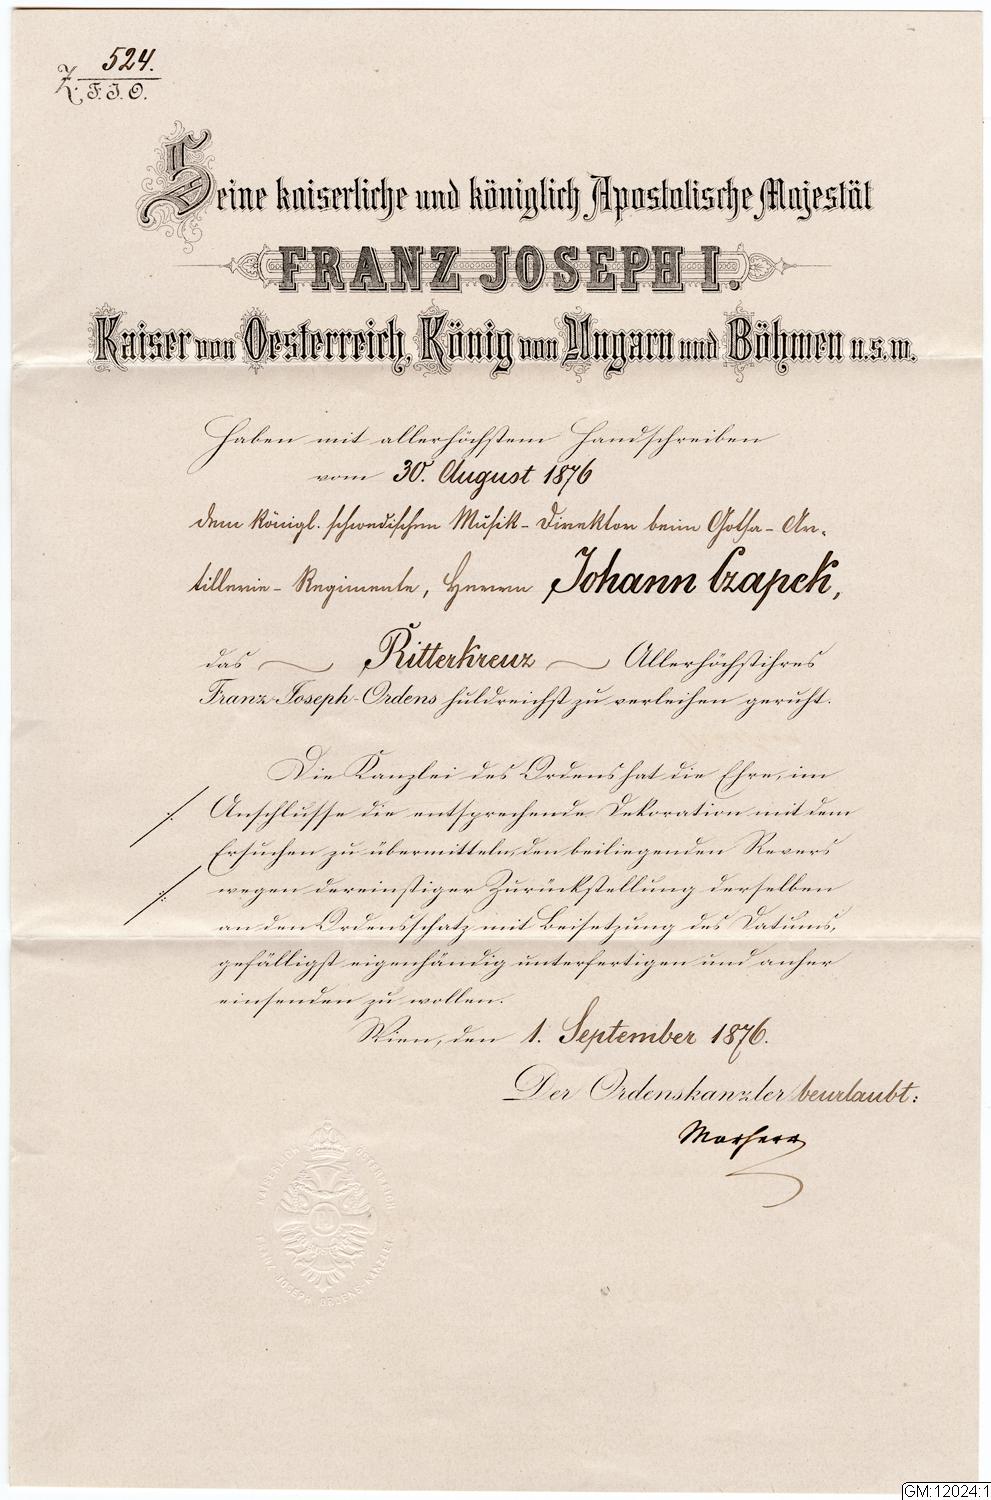 Z. 524.
F. J. O.
Seine kaiserliche und königlich Apostolische Majestät
FRANZ JOSEPH I.
Kaiser von Oesterreich, König von Ungarn und Böhmen u.s.w.
Haben mit allerhöchstem Handschreiben
vom 30. August 1876
dem königl. schwedischen Musik-Direktor beim Gotha-Ar-
tillerie-Regimente, Herrn Johann Czapek,
das Ritterkreuz Allerhöchstihres
Franz-Joseph-Ordens huldreichst zu verleihen geruht.
Die Kanzlei des Ordens hat die Ehre, im
Anschlusse die entsprechende Dekoration mit dem
Ersuchen zu übermitteln, den beiliegenden Revers
wegen dereinstiger Zurückstellung derselben
an den Ordensschatz mit Beisetzung des Datums,
gefälligst eigenhändig unterfertigen und anher
einsenden zu wollen.
Wien, den 1. September 1876.
Der Ordenskanzler beurlaubt:
FRANZ JOSEPH ORDENS KANZLEI
GM:12024:1